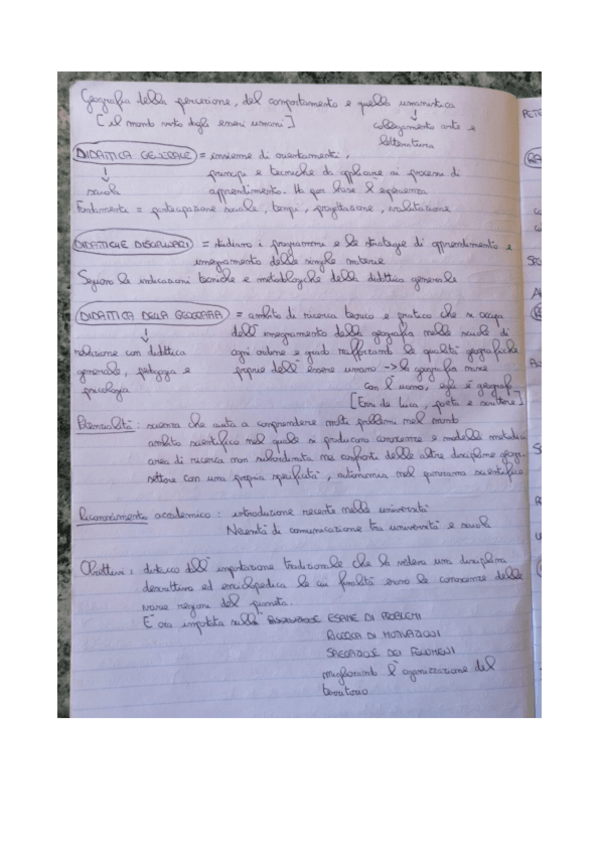 Geografia della percezione, del comportamento e quella umanistica
[il mondo visto dagli esseri umani]
collegamento arte e
letteratura
DIDATTICA GENERALE = insieme di orientamenti,
principi e tecniche da applicare ai processi di
scuola
apprendimento. Ha per base l'esperienza
Fondamenti = partecipazione sociale, tempi, progettazione, valutazione
DIDATTICHE DISCIPLINARI = studiano i programmi e le strategie di apprendimento e
insegnamento delle singole materie
Seguono le indicazioni tecniche e metodologiche della didattica generale
DIDATTICA DELLA GEOGRAFIA = ambito di ricerca teorico e pratico che si occupa
dell'insegnamento della geografia nelle scuole di
relazione con didattica
ogni ordine e grado rafforzando le qualità geografiche
generale, pedagogia e
proprie dell'essere umano -> la geografia nasce
psicologia
con l'uomo, egli è geografo
[Erri de Luca, poeta e scrittore]
Potenzialità: scienza che aiuta a comprendere molti problemi nel mondo
ambito scientifico nel quale si producono conoscenze e modelli
area di ricerca non subordinata nei confronti delle altre discipline
settore con una propria specificità, autonomia nel panorama scientifico
Riconoscimento accademico: introduzione recente nelle università
Necessità di comunicazione tra università e scuola
Obiettivi: distacco dall'impostazione tradizionale che la vedeva una disciplina
descrittiva ed enciclopedica le cui finalità erano la conoscenza delle
varie regioni del pianeta.
E' ora impostata sulla ESAME DI PROBLEMI
RICERCA DI MOTIVAZIONI
SPIEGAZIONE DEI FENOMENI
migliorando l'organizzazione del
territorio